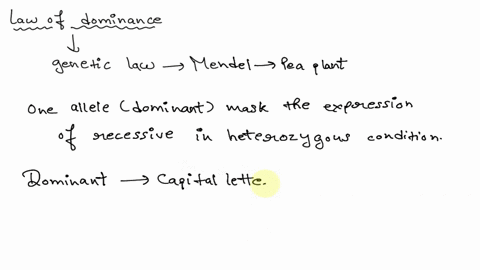 Law of dominance
↓
genetic law → Mendel → Pea plant
One allele (dominant) mask the expression
of recessive in heterozygous condition.
Dominant → Capital lette